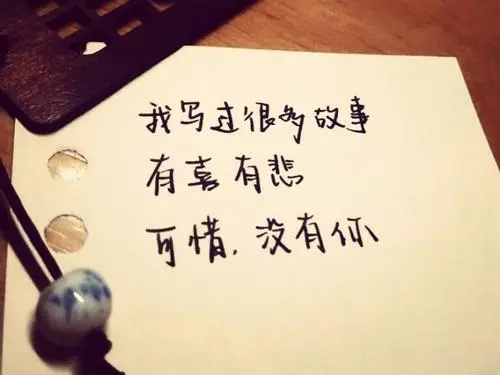 我写过很多故事
有喜有悲
可惜，没有你